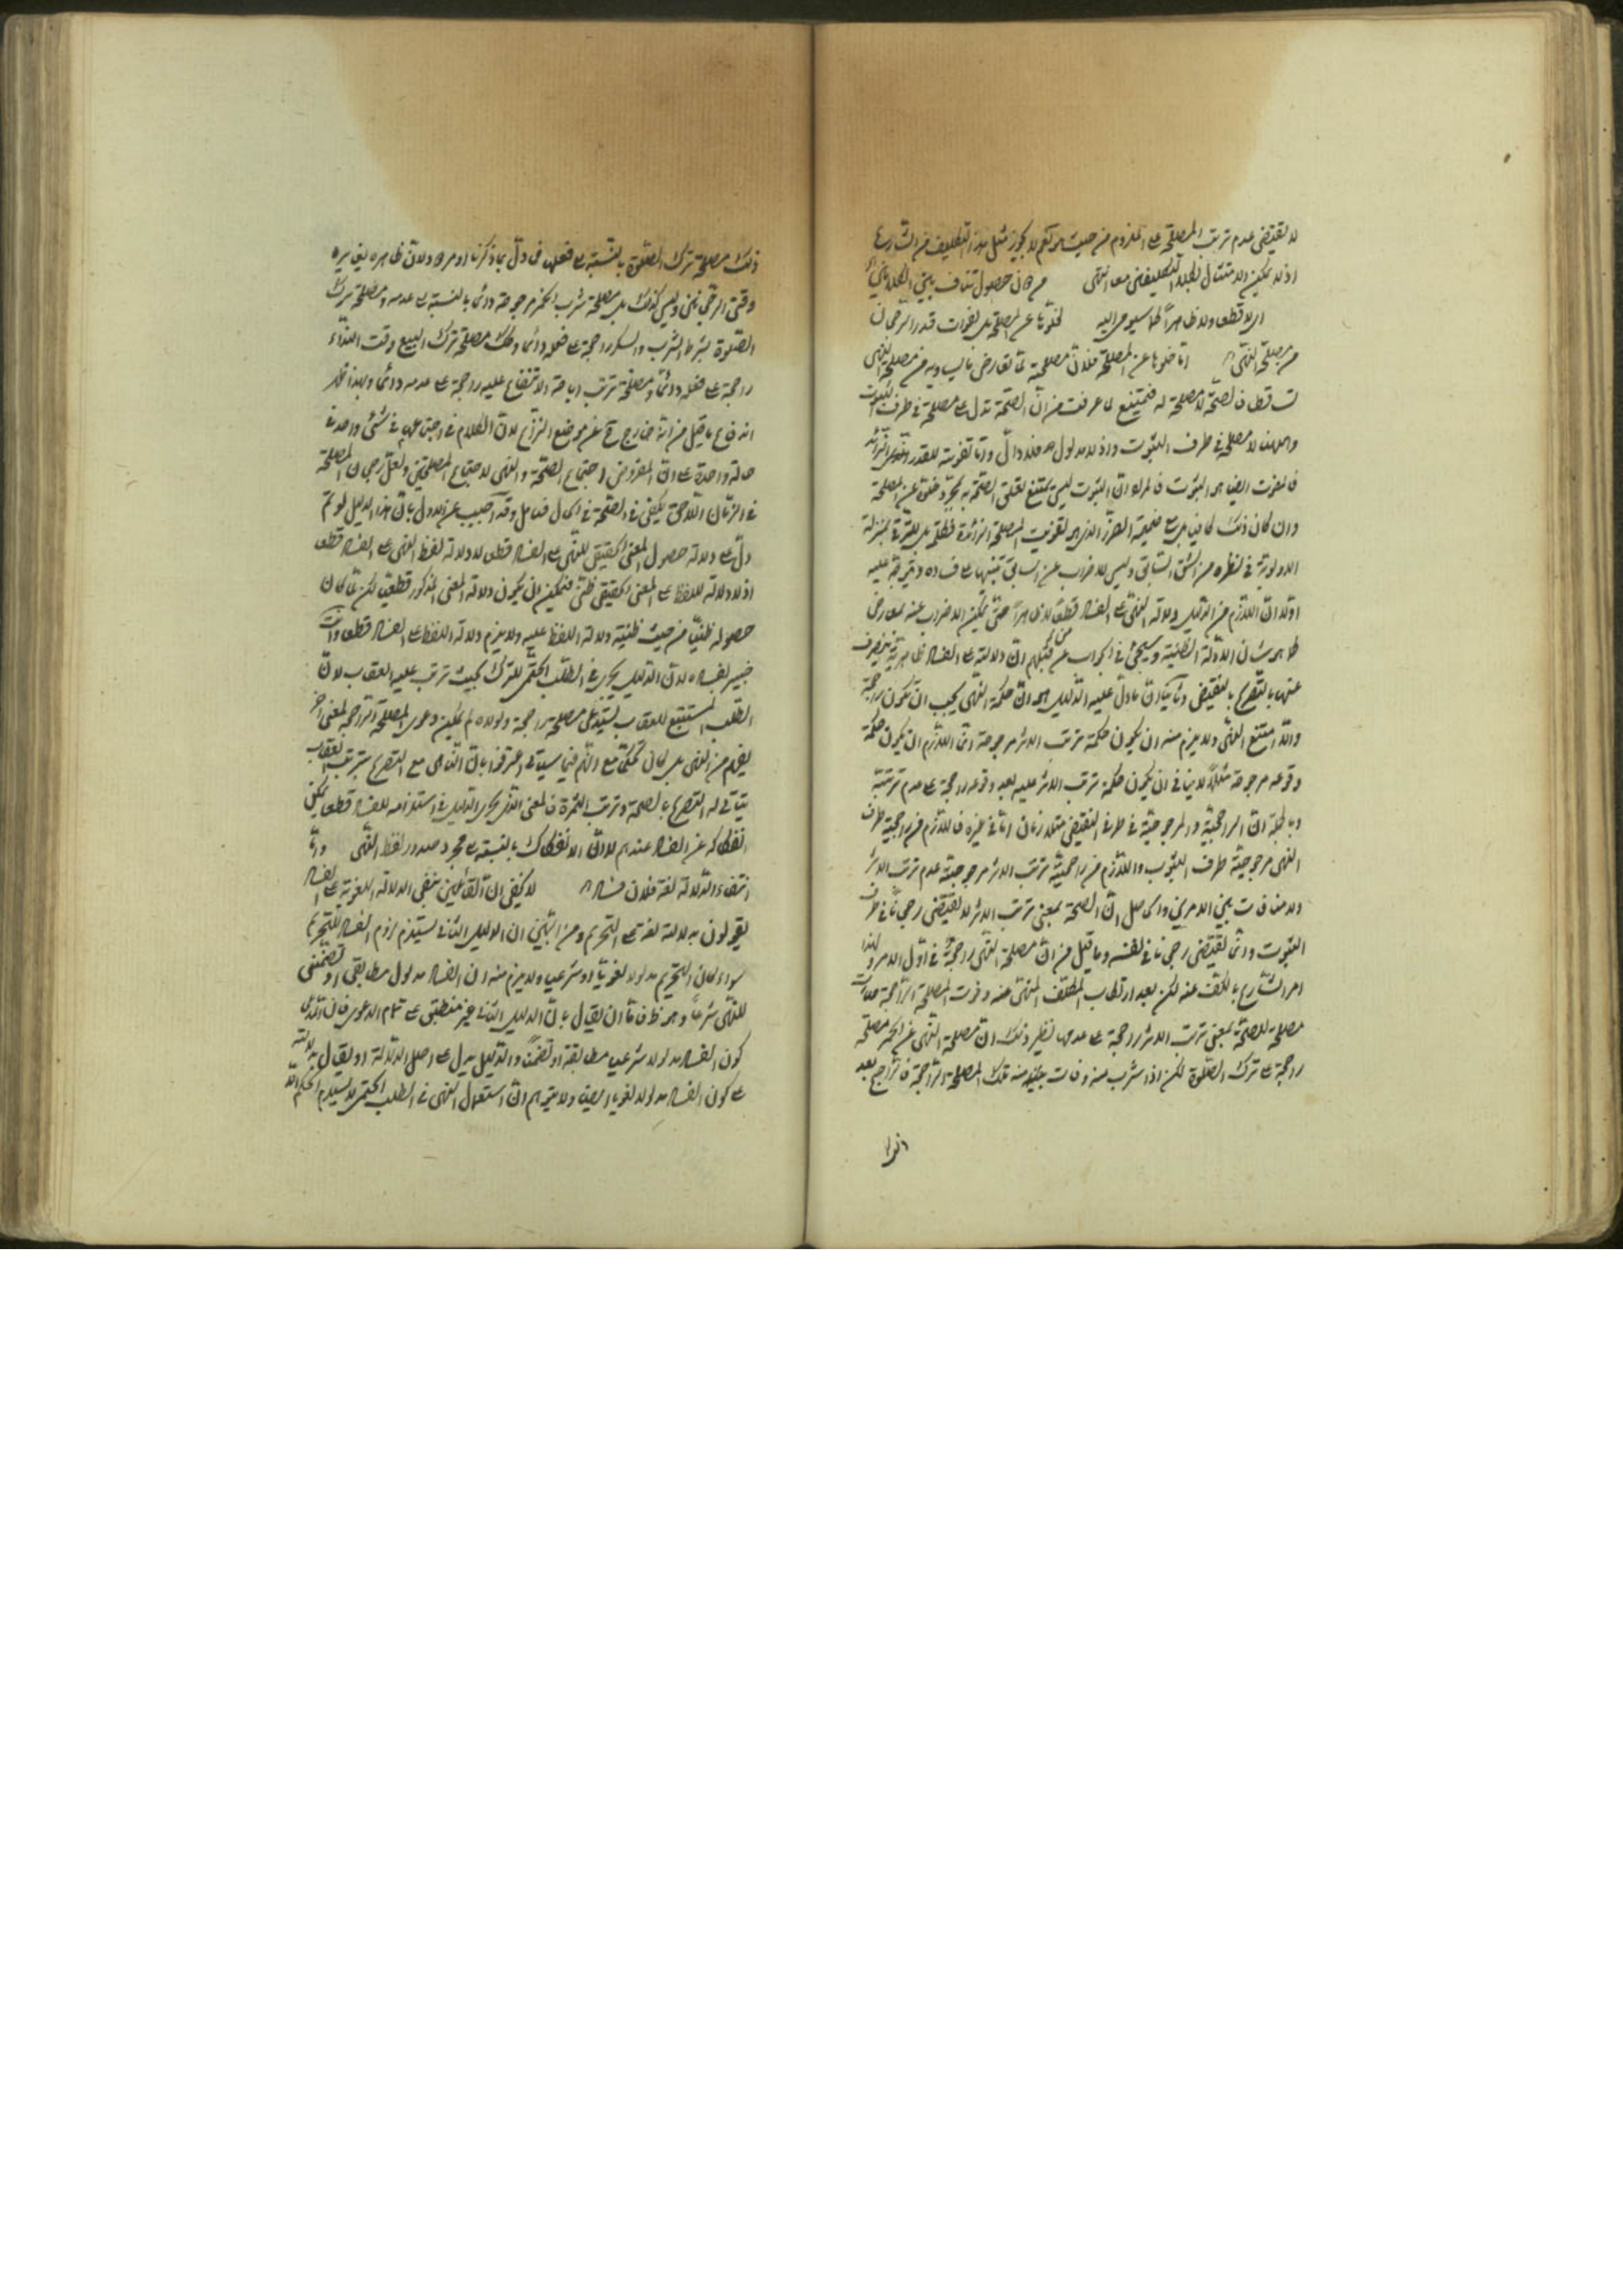 لا يقتضى عدم ترتب المصلحة على الملزوم من حيث هو نعم لا يجوز مثل هذا التكليف من الشارع
اذ لا يمكن الامتثال بكلا التكليفين معا انتهى فى حصول تناف بين الكلامين
اى لا قطعا ولا ظاهرا كما سيومى اليه لخلوها عن المصلحة بل لفوات قدر الرجحان
من مصلحة النهى اما خلوها عن المصلحة فلان مصلحة تعارض يساويه من مصلحة النهى
تساقطا فالصحة لا مصلحة له فيمتنع لما عرفت من ان الصحة تدل على مصلحة فى طرف الثبوت
وههنا لا مصلحة فى طرف الثبوت واذ لا مدلول فلا دال واما تفويته للقدر الزائد
فالمفوت ايضا هو الثبوت ان الثبوت ليس يمتنع تعلق الصحة به لمجرد خلوه عن المصلحة
وان كان ذلك كافيا بل مع ضميمة الضرر الذى هو تفويت المصلحة الزائدة فكلمة بل للترقى بمنزلة
الاولوية فى نظره من الشق السابق وليس للاضراب عن السابق تنبيها على فساده ويتوجه عليه
اولا ان اللازم من الدليل دلالة النهى على الفساد قطعا لا ظاهرا حتى يمكن الاضراب عنه بمعارض
كما هو شان الادلة الظنية وسيجئ فى الجواب عن قبلهم ان دلالته على الفساد ظاهرية ينصرف
عنها بالتصريح بالنقيض وثانيا ان ما دل عليه الدليل هو ان حكمة النهى يجب ان تكون راجحة
والا امتنع النهى ولا يلزم منه ان يكون حكمة ترتب الاثر مرجوحة انما اللازم ان يكون حكمة
وقوعه مرجوحة مثلا لا ينافى ان يكون حكمة ترتب الاثر عليه بعد وقوعه راجحة على عدم ترتبه
وبالجملة ان الراجحية والمرجوحية فى طرفى النقيض متلازمان اما فى غيره فاللازم من راجحية طرف
النهى مرجوحية طرف الثبوت واللازم من راجحية ترتب الاثر مرجوحية عدم ترتب الاثر
ولا منافات بين الامرين والحاصل ان الصحة بمعنى ترتب الاثر لا يقتضى رجحانا فى طرف
الثبوت وانما يقتضى رجحانا فى نفسه وما قيل من ان مصلحة النهى راجحة فى اول الامر ولهذا
امر الشارع بالكف عنه لكن بعد ارتكاب المكلف المنهى عنه وفوت المصلحة الراجحة صارت
مصلحة الصحة بمعنى ترتب الاثر راجحة على عدمها نظير ذلك ان مصلحة النهى عن الخمر مصلحة
راجحة على ترك الصلوة لكن اذا شرب منه وفات منه تلك المصلحة الراجحة فالراجح بعد
ذلك مصلحة ترك الصلوة بالنسبة على فعلها فادل بما ذكرنا
وقتى الرجحانين وليس كذلك بل مصلحة شرب الخمر مرجوحة دائما بالنسبة على عدمه ومصلحة ترك
الصلوة بشرط الشرب والسكر راجحة على فعله دائما وكذلك مصلحة ترك البيع وقت النداء
راجحة على فعله دائما ومصلحة ترتب اباحة الانتفاع عليه راجحة على عدمه دائما وبهذا ظهر
اندفاع ما قيل من انه خارج عن موضع النزاع لان الكلام فى اجتماعهما فى شئ واحد فى
حالة واحدة على ان المفروض اجتماع الصحة والنهى لا اجتماع المصلحتين ولعل رجحان المصلحة
فى الزمان اللاحق يكفى فى الصحة فى الحال فتامل وقد اجيب عن الاول بان هذا الدليل لو تم
دل على دلالة حصول المعنى الحقيقى للنهى على الفساد قطعا لا دلالة لفظ النهى على الفساد قطعا
اذ لا دلالة للفظ على المعنى الحقيقى ظنى فيمكن ان يكون دلالة المعنى المذكور قطعية لكن لما كان
حصوله ظنيا من حيث ظنية دلالة اللفظ عليه ولا يلزم دلالة اللفظ على الفساد قطعا وانت
خبير بفساده لان الدليل يجرى فى الطلب الحتمى للترك بحيث ترتب عليه العقاب لان
الطلب المستتبع للعقاب يستدعى مصلحة راجحة ولولاه لم يمكن دعوى المصلحة الراجحة لمعنى اخر
يفهم من النهى بل كان تحكما مع انهم فيما سياتى اعترفوا بان التناهى مع التصريح بترتب العقاب
يتاتى له التصريح بالصحة وترتب الثمرة فالمعنى الذى يجرى الدليل فى استلزامه للفساد قطعا يمكن
انفكاكه عن الفساد عندهم لا ان الانفكاك بالنسبة على مجرد صدور لفظ النهى واما
انتفاء الدلالة لغة فلان فساد لا يخفى ان القائلين بنفى الدلالة اللغوية على الفساد
يقولون بدلالة لغة على التحريم ومن البين ان الدليل الثانى يستلزم لزوم الفساد للتحريم
سواء كان التحريم مدلولا لغويا او شرعيا ولا يلزم منه ان الفساد مدلول مطابقى او تضمنى
للنهى شرعا وهو ظ فاما ان يقال بان الدليل الثانى غير منطبق على تمام الدعوى فان
كون الفساد مدلولا شرعيا مطابقة او تضمنا والدليل يدل على اصل الدلالة او يقال بدلالته
على كون الفساد مدلولا لغويا ايضا ولا يتوهم ان استعمال النهى فى الطلب الحتمى لا يستلزم